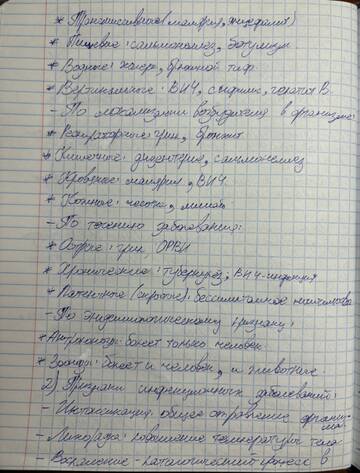 * Трансмиссивное (малярия, энцефалит)
* Пищевые: сальмонеллез, ботулизм
* Водное: холера, брюшной тиф
* Вертикальное: ВИЧ, сифилис, гепатит В.
- По локализации возбудителя в организме:
* Респираторное: грип, бронхит
* Кишечное: дизентерия, сальмонеллез
* Кровяное: малярия, ВИЧ.
* Кожные: чесотка, лишай
- По течению заболевания:
* Острые: грип, ОРВИ
* Хронические: туберкулез, ВИЧ-инфекция
* Латентные (скрытые): бессимптомное
- По эпидемиологическому признаку:
* Антропонозы: болеет только человек.
* Зоонозы: болеет и человек, и животные.
2) Признаки инфекционных заболеваний:
- Интоксикация: общее отравление организма
- Лихорадка: повышение температуры тела
- Воспаление - патологический процесс в